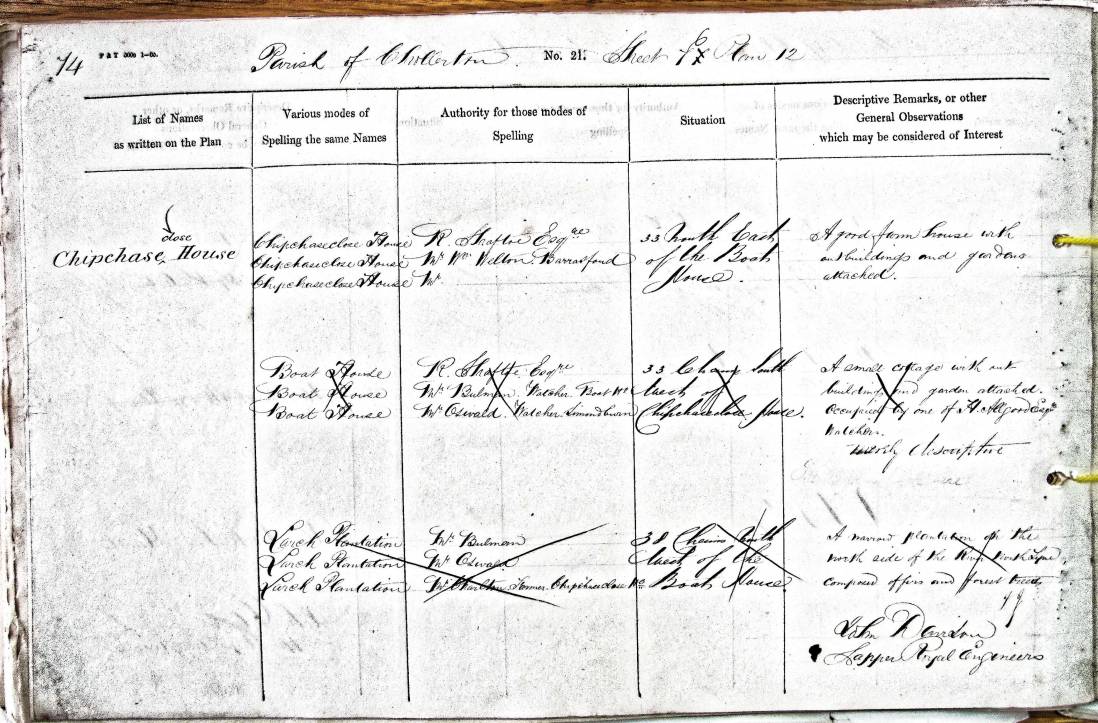 74 Parish of Chollerton No. 21. Sheet Plan 12
List of Names
as written on the Plan
Various modes of
Spelling the same Names
Authority for those modes of
Spelling
Situation
Descriptive Remarks, or other
General Observations
which may be considered of Interest
close
Chipchase House
Chipchaseclose House
Chipchaseclose House
Chipchaseclose House
R. Shaftoe Esqre
Mr Wm Welton Barrasford
Mr
33 South East
of the Boat
House.
A good farm house with
outbuildings and gardens
attached.
Boat House
Boat House
Boat House
R. Shaftoe Esqre
Mr Bulman. Watcher Boat
Mr Oswald. Watcher
33 Chains South
West of
Chipchaseclose House.
A small cottage with out
buildings and garden attached.
Occupied by one of H. Allgood Esqre
Watchers.
merely descriptive
Larch Plantation
Larch Plantation
Larch Plantation
Mr Bulman
Mr Oswald
Mr Charlton Farmer Chipchaseclose
38 Chains South
West of the
Boat House
A narrow plantation on the
north side of the River North Tyne
composed of firs and forest trees
John
Sapper Royal Engineers